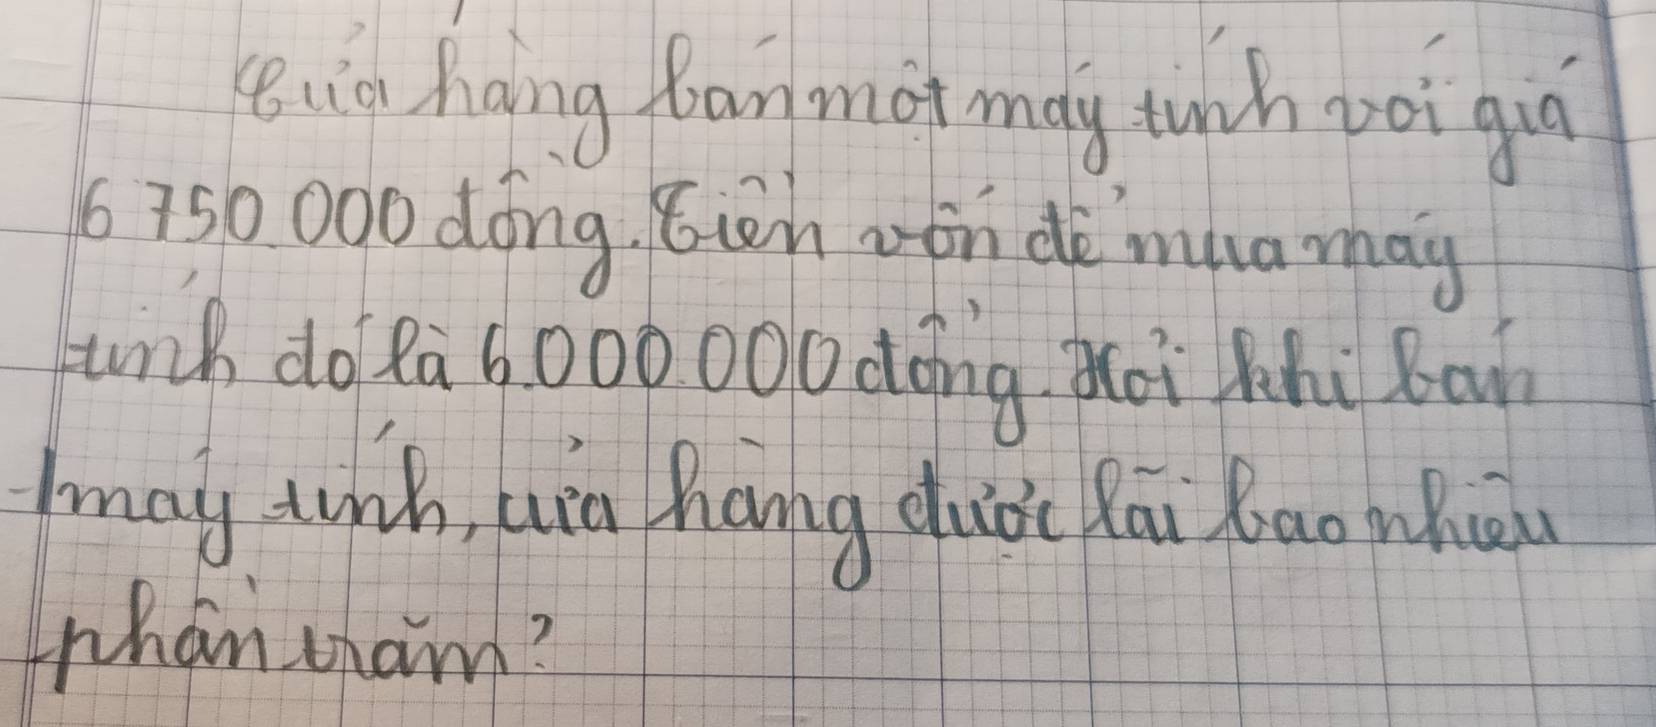 Cửa hàng bán một máy tính với giá
6 750 000 đồng. Tiền vốn để mua máy
tính đó là 6.000.000 đồng. Hỏi khi bán
máy tính, cửa hàng được lãi bao nhiêu
phần trăm?